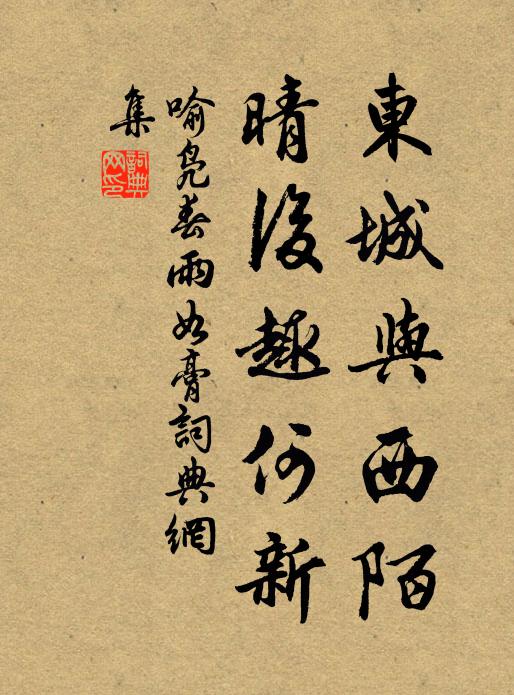 東城與西陌
晴後趣何新
喻凫春雨如膏詞典網
集
詞典
网印